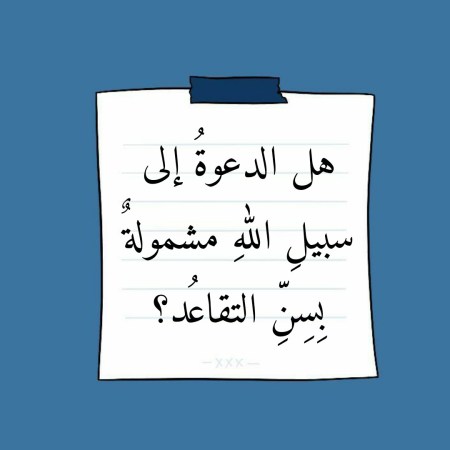 هل الدعوةُ إلى
سبيلِ اللهِ مشمولةٌ
بِسِنِّ التقاعُد؟